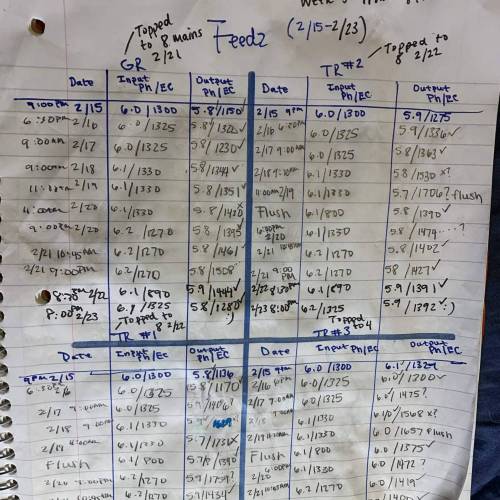 Feedz (2/15-2/23)
Topped to 8 mains 2/21
GR
Topped to 8 2/22
TR #2
Date Input Ph/EC Output Ph/EC
Date Input Ph/EC Output Ph/EC
9:00pm 2/15 6.0/1300 5.8/1150✓ 2/15 9pm 6.0/1300 5.9/1275
6:30pm 2/16 6.0/1325 5.8/1325✓ 2/16 6:30pm 6.0/1325 5.9/1336✓
9:00am 2/17 6.0/1325 5.8/1230✓ 2/17 9:00am 6.0/1325 5.8/1363✓
9:00am 2/18 6.1/1330 5.8/1344✓ 2/18 9:00am 6.1/1330 5.8/1530 x?
2/19 6.1/1330 5.8/1351✓ 4:00am 2/19 6.1/1330 5.7/1706? flush
4:00am 2/20 6.1/1330 5.8/1420x Flush 6.1/800 5.8/1390✓
9:00pm 2/20 6.2/1270 5.8/1395✓ 2/20 6.1/1330 5.8/1474 ...?
2/21 10:45am 6.2/1270 5.8/1461✓ 2/21 6.2/1270 5.8/1402✓
2/21 9:00pm 6.2/1270 5.8/1508 2/21 9:00pm 6.2/1270 58/1427✓
8:30pm 2/22 6.1/890 5.9/1444✓ 2/22 8:30pm 6.1/890 5.9/1391✓
8:00pm 2/23 6.2/1325 5.8/1280 :) 2/23 8:00pm 6.2/1325 5.9/1392✓ :)
TR #1 Topped to 8 2/22
TR #3 Topped to 4
Date Input Ph/EC Output Ph/EC Date Input Ph/EC Output Ph/EC
9pm 2/15 6.0/1300 5.8/1136 2/15 9pm 6.0/1300 6.1/1329
6.0/1325 5.8/1170✓ 2/16 6.0/1325 6.0/1300✓
2/17 9:00am 6.0/1325 2/17 9:00am 6.0/1325 6.0/1475?
2/18 6.1/1330 2/18 6.1/1330 6.0/1568 x?
2/19 4:00am 6.1/1330 5.7/1731x 2/19 4:00am 6.1/1330 6.0/1657 Flush
Flush 6.1/800 5.7/1390✓ Flush 6.1/800 6.0/1375✓
2/20 9:00pm 6.2/1270 5.7/1759? 2/20 6.1/1330 6.0/1472?
6.2/1270 5.9/1434 2/21 10:45am 6.2/1270 6.0/1419